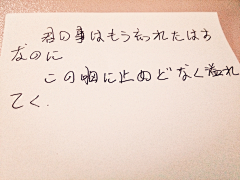 君の事はもう忘れたはず
なのに
この胸に止めどなく溢れ
てく.